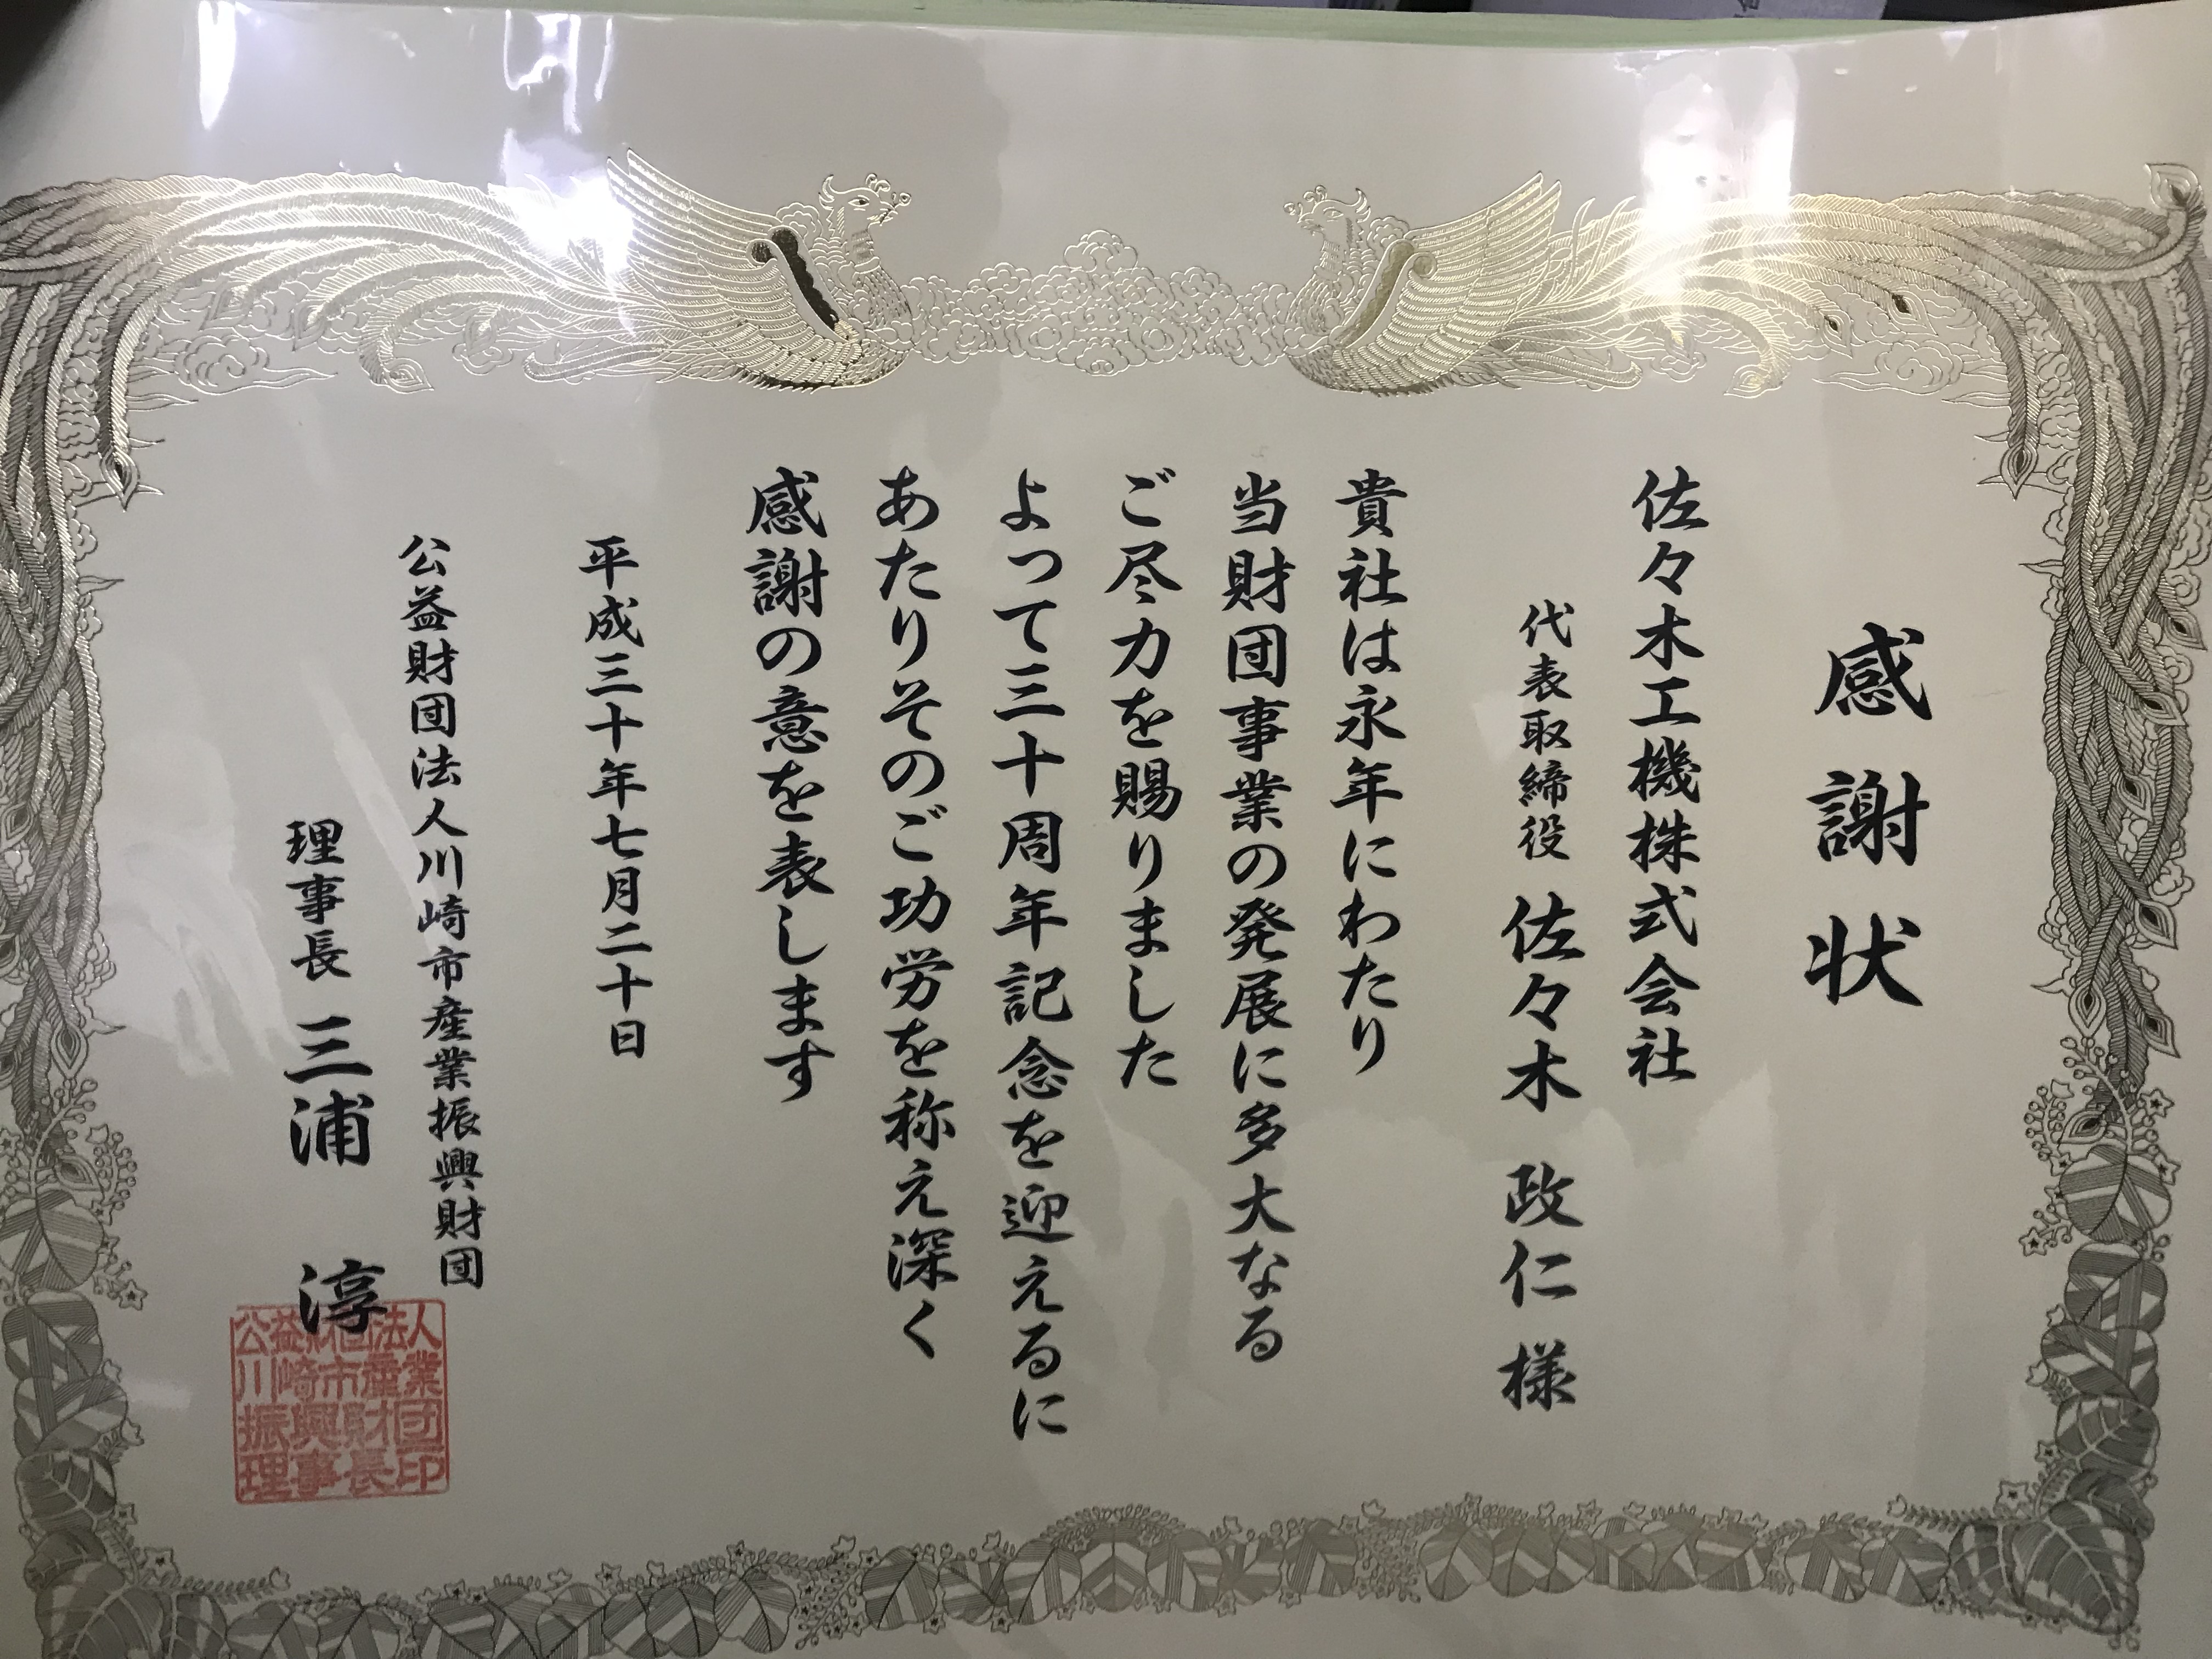 感謝状
佐々木工機株式会社
代表取締役 佐々木 政仁 様
貴社は永年にわたり
当財団事業の発展に多大なる
ご尽力を賜りました
よって三十周年記念を迎えるに
あたりそのご功労を称え深く
感謝の意を表します
平成三十年七月二十日
公益財団法人川崎市産業振興財団
理事長 三浦 淳
公益財団法人
川崎市産業
振興財団
理事長印